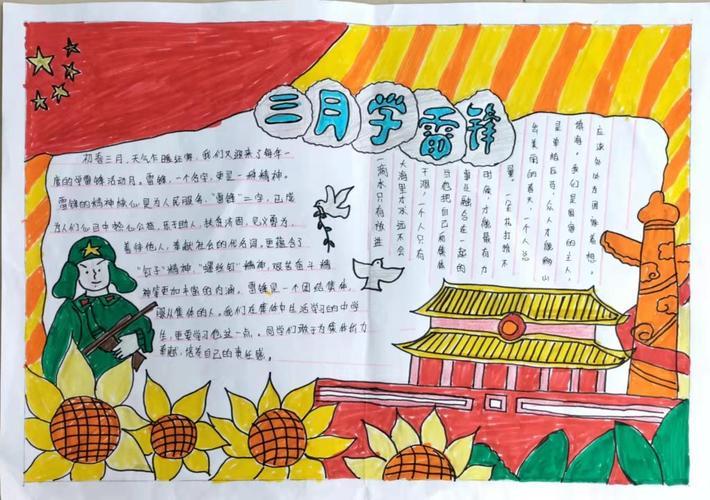 三月学雷锋
初春三月，天气乍暖还寒，我们又迎来了每年一
度的学雷锋活动月。雷锋，一个名字，更是一种精神。
雷锋的精神核心是为人民服务，"雷锋"二字，已成
为人们心目中热心公益，乐于助人，扶贫济困，见义勇为，
善待他人，奉献社会的代名词，更蕴含了
"钉子"精神，"螺丝钉"精神，艰苦奋斗精
神等更加丰富的内涵。雷锋是一个团结集体，
服从集体的人，我们在集体中生活学习的中学
生，更要学习他这一点。同学们敢于为集体出力
奉献，培养自己的责任感。
一滴水只有放进
大海里才永远不会
干涸，一个人只有
当他把自己和集体
事业融合在一起的
时候，才能最有力
量。一朵花打扮不
出美丽的春天，一个人总
是单枪匹马，众人才能移山
填海。我们是国家的主人，
应该处处为国家着想。